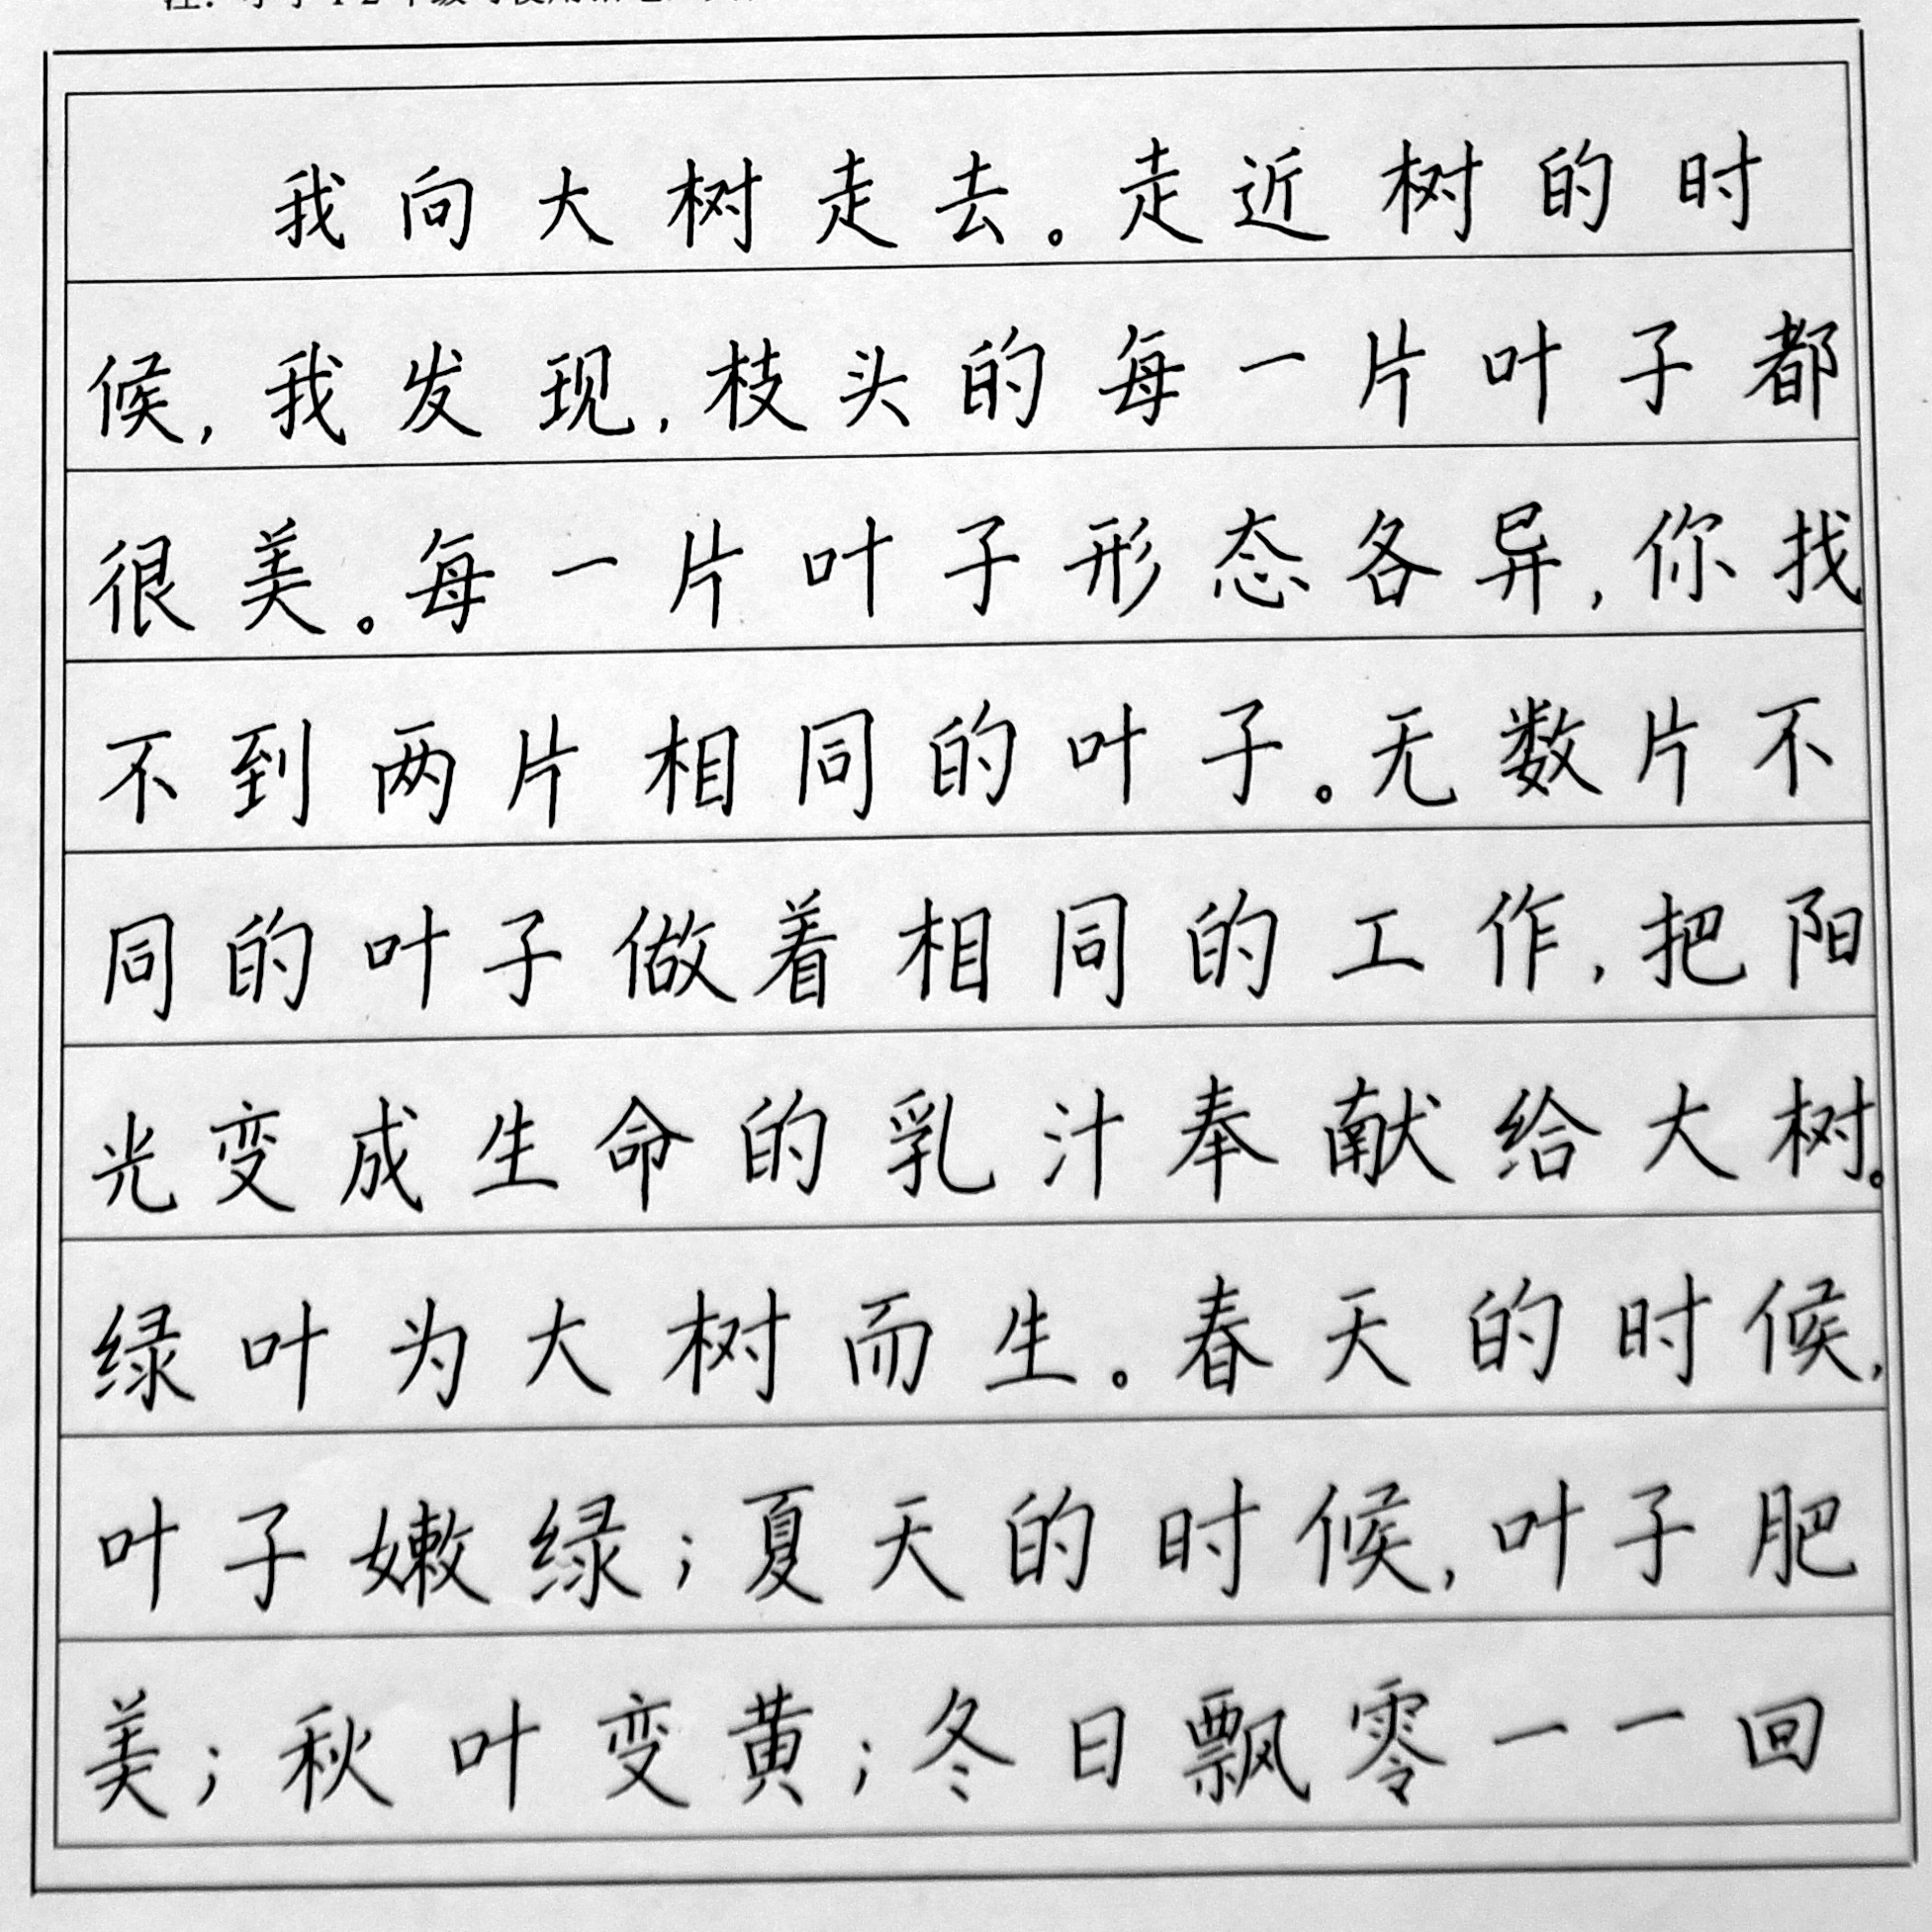 我向大树走去。走近树的时
候,我发现,枝头的每一片叶子都
很美。每一片叶子形态各异,你找
不到两片相同的叶子。无数片不
同的叶子做着相同的工作,把阳
光变成生命的乳汁奉献给大树。
绿叶为大树而生。春天的时候,
叶子嫩绿;夏天的时候,叶子肥
美;秋叶变黄;冬日飘零一一回